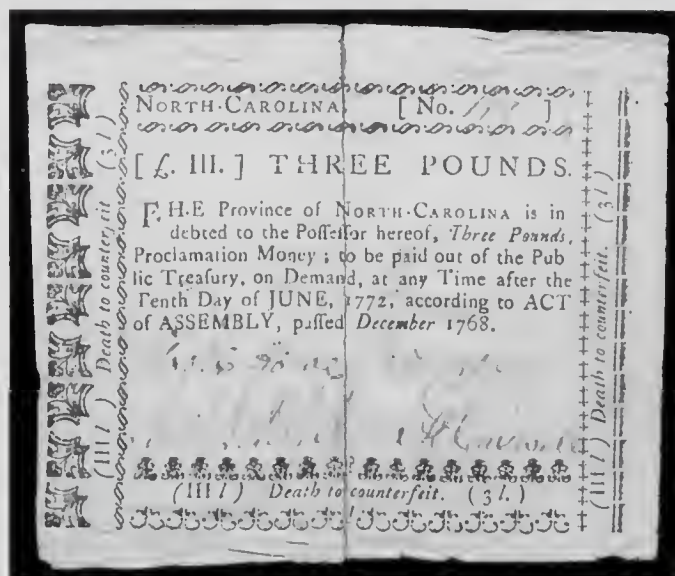 NORTH-CAROLINA [ No. ]
[ £. III. ] THREE POUNDS.
THE Province of NORTH-CAROLINA is in
debted to the Poſſeſſor hereof, Three Pounds,
Proclamation Money ; to be paid out of the Pub
lic Treaſury, on Demand, at any Time after the
Tenth Day of JUNE, 1772, according to ACT
of ASSEMBLY, paſſed December 1768.
(III l) Death to counterfeit. (3 l.)
(III l) Death to counterfeit (3 l)
(III l) Death to counterfeit. (3 l)